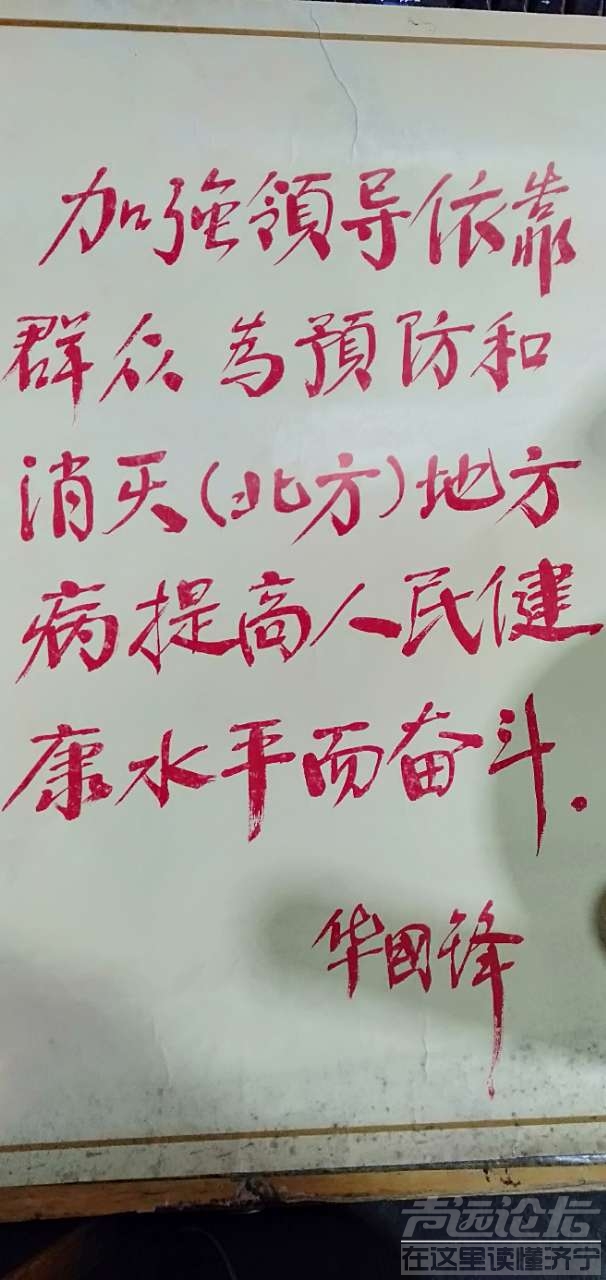 加強領导依靠
群众为預防和
消灭(北方)地方
病提高人民健
康水平而奋斗.
华國锋
声远论坛
在这里读懂济宁